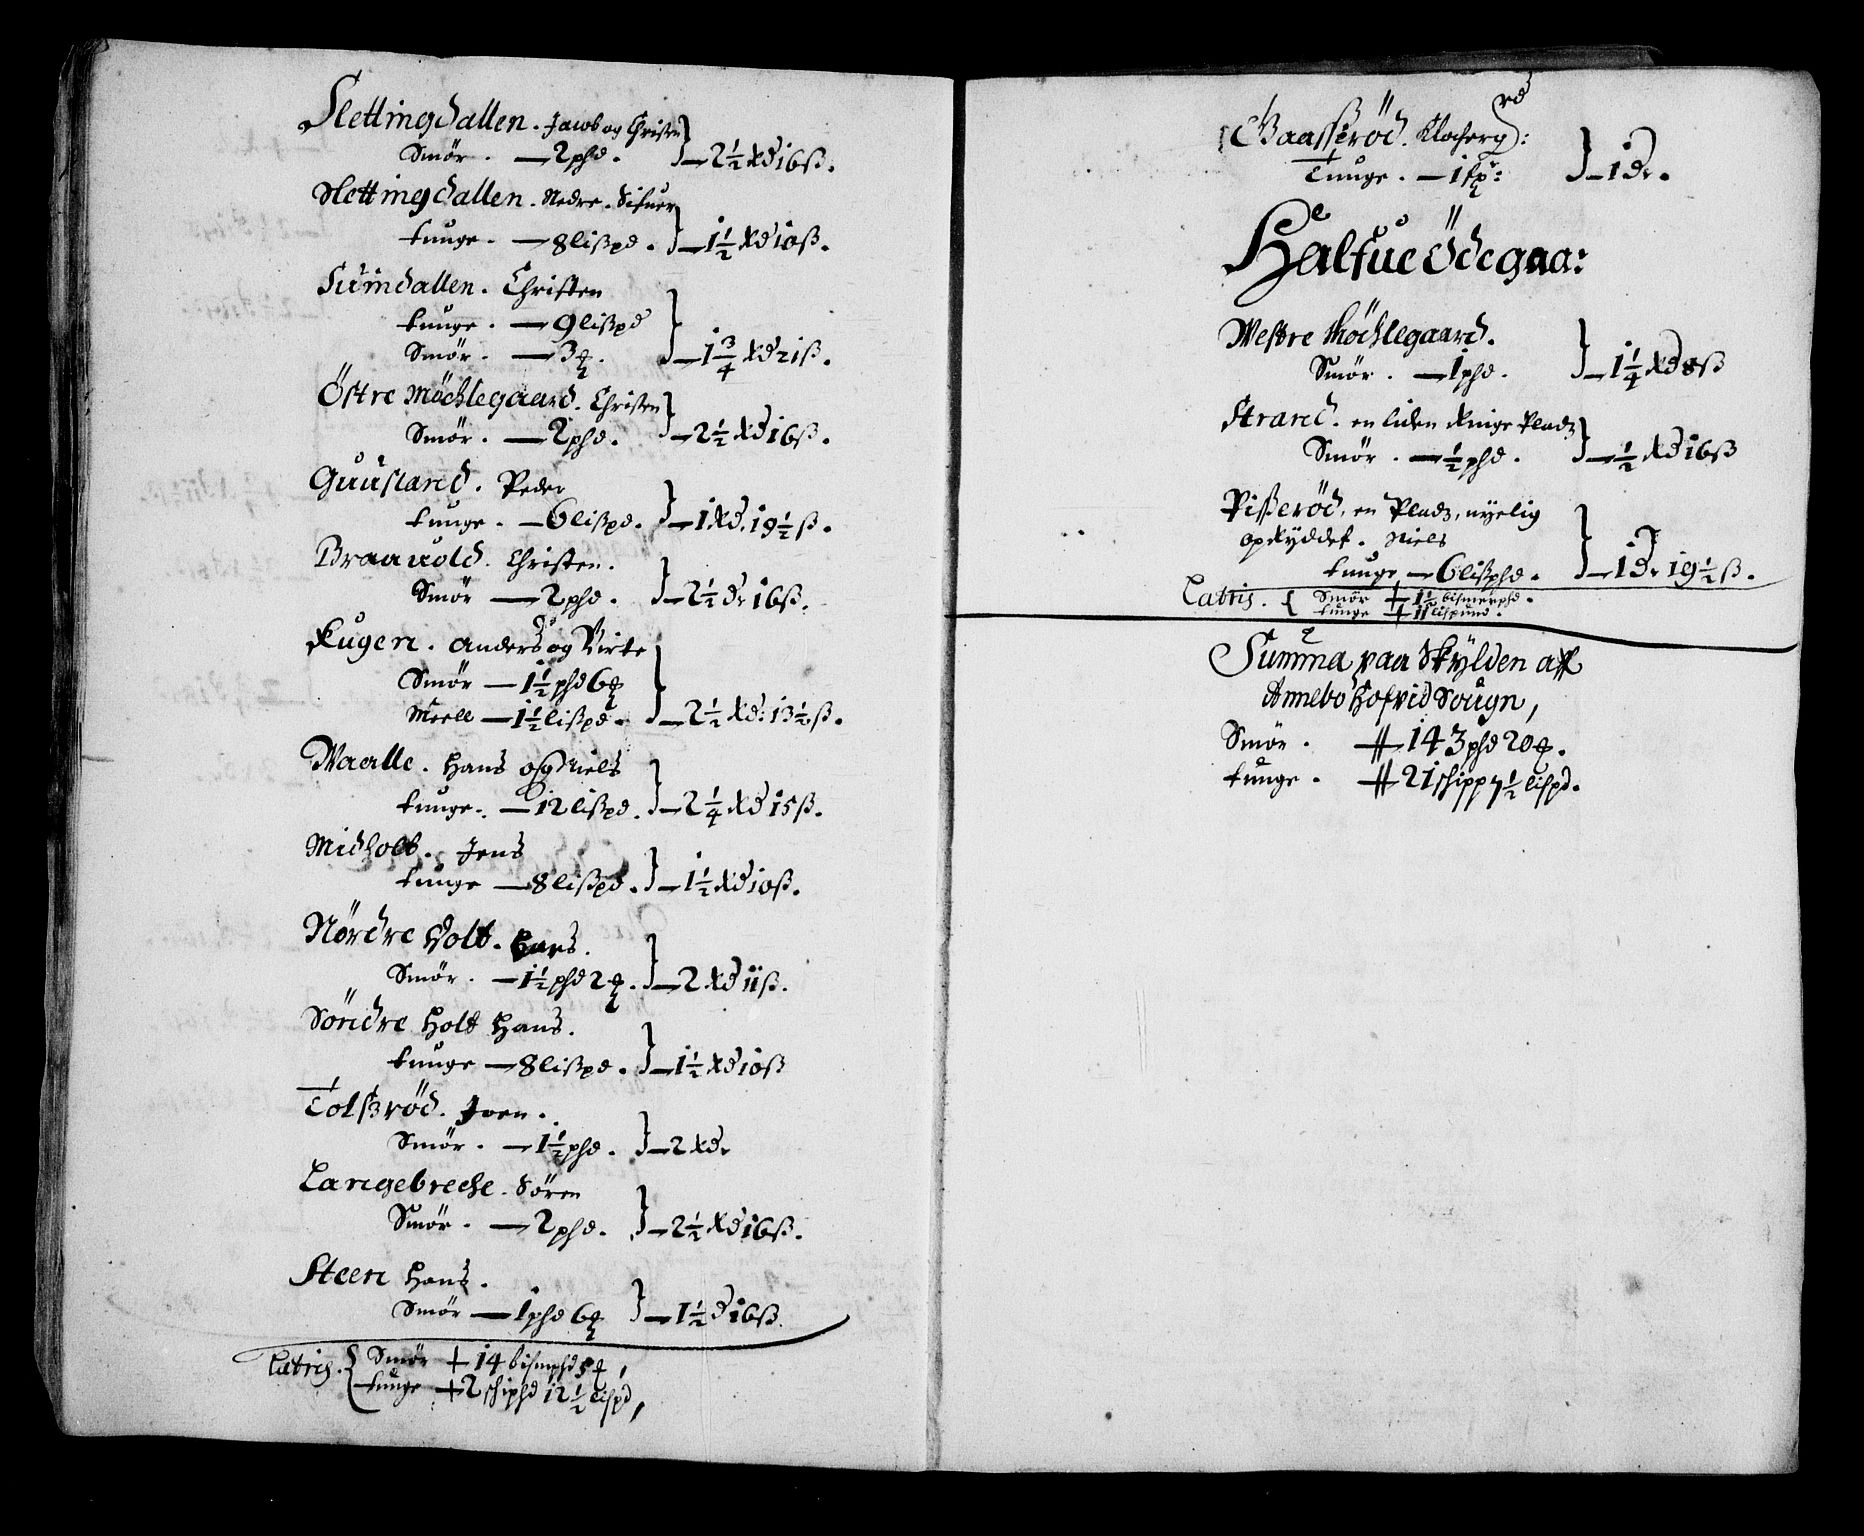 Slettingdallen. Jacob og Christen
Smør. — 2 phd. — 2½ Rd 16 ß.
Slettingdallen. Nedre. Sifuer
tunge. — 8 lißpd. — 1½ Rd 10 ß.
Sumdallen. Christen
tunge. — 9 lißpd
Smør. — 3 — 1¾ Rd 21 ß.
Östre Möchlegaard. Christen
Smör. — 2 phd. — 2½ Rd 16 ß.
Guusland. Peder
tunge. — 6 lißpd. — 1 Rd. 19½ ß.
Braauold. Christen.
Smör — 2 phd. — 2½ dr 16 ß.
Rugen. Anders og Birte
Smör — 1½ phd 6
Meell — 1½ lißpd. — 2½ Rd: 13½ ß.
Waalle. Hans og Niels
tunge. — 12 lißpd. — 2¼ Rd 15 ß.
Midholt. Jens
tunge — 8 lißpd. — 1½ Rd 10 ß.
Nördre Holt. Hans.
Smör. — 1½ phd 2 — 2 Rd 11 ß.
Söndre Holt Hans.
tunge — 8 lißpd. — 1½ Rd 10 ß
Tolßröd. Joen.
Smör. — 1½ phd. — 2 Rdr
Langebreche. Sören
Smör. — 2 phd. — 2½ Rd 16 ß.
Steen Hans.
Smör — 1 phd 6 — 1½ d 16 ß.
Latris. Smör + 14 bismphd 5,
tunge + 2 schiphd 12½ lispd,
Baasseröd. Klocherg rd:
Tunge. — 1 — 1 dr.
Halfue Ödegaa:
Westre Möchlegaard.
Smör. — 1 phd. — 1¼ Rd 8 ß
Strand. en liden Ringe Pladz
Smör. — ½ phd. — ½ Rd 16 ß
Pißeröd. en Pladz, nyelig
opRyddet. Niels
tunge — 6 lißphd. — 1 dr 19½ ß.
Latris. Smör + 1½ bismerphd.
tunge + 11 lispund.
Summa paa Skylden aff
Annebo Hofvid Sougn,
Smör. 143 phd 20.
tunge. 21 schipp 7½ lispd.